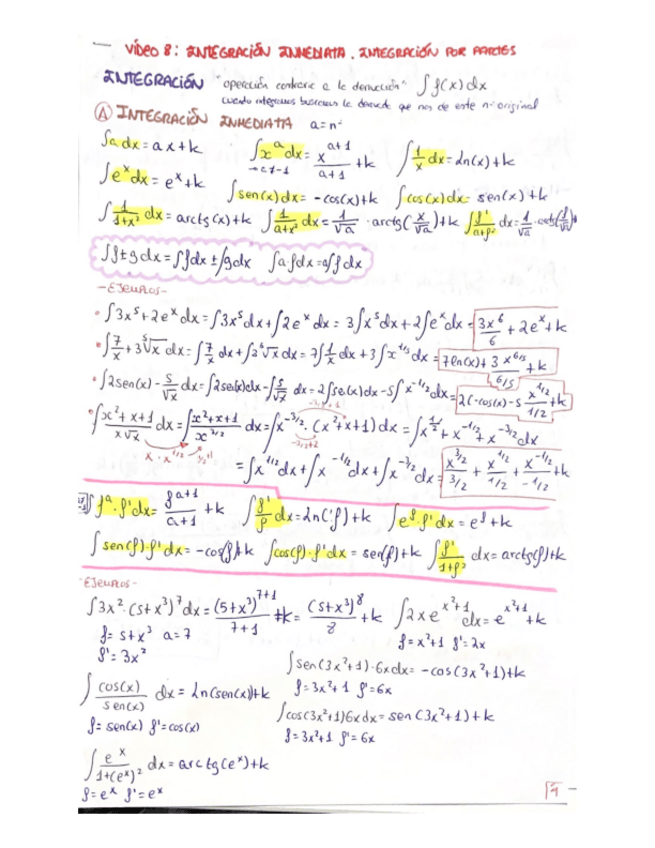 VÍDEO 8: INTEGRACIÓN INMEDIATA. INTEGRACIÓN POR PARTES
INTEGRACIÓN "operación contraria a la derivación" ∫f(x)dx
cuando integramos buscamos la derivada que nos de este nº original
Ⓐ INTEGRACIÓN INMEDIATA a=nº
∫a dx = ax+k ∫x^a dx = x^(a+1)/(a+1) +k ∫1/x dx = ln(x)+k
→ a≠-1
∫e^x dx = e^x+k ∫sen(x)dx = -cos(x)+k ∫cos(x)dx = sen(x)+k
∫1/(1+x²) dx = arctg(x)+k ∫1/(a+x²) dx = 1/√a · arctg(x/√a)+k ∫f'/(a+f²) dx = 1/√a · arctg(f/√a)+k
∫f±g dx = ∫f dx ± ∫g dx ∫a·f dx = a∫f dx
-EJEMPLOS-
· ∫3x⁵+2e^x dx = ∫3x⁵dx+∫2e^x dx = 3∫x⁵dx+2∫e^x dx = 3x⁶/6 + 2e^x+k
· ∫7/x + 3⁵√x dx = ∫7/x dx + ∫3⁵√x dx = 7∫1/x dx + 3∫x^(1/5) dx = 7ln(x)+3 x^(6/5)/(6/5) +k
· ∫2sen(x) - 5/√x dx = ∫2sen(x)dx - ∫5/√x dx = 2∫sen(x)dx - 5∫x^(-1/2)dx = 2(-cos(x)-5 x^(1/2)/(1/2) +k
· ∫(x²+x+1)/(x√x) dx = ∫(x²+x+1)/x^(3/2) dx = ∫x^(-3/2)·(x²+x+1)dx = ∫x^(1/2)+x^(-1/2)+x^(-3/2)dx
x·x^(1/2) 1/2+1 -3/2+2
= ∫x^(1/2)dx+∫x^(-1/2)dx+∫x^(-3/2)dx = x^(3/2)/(3/2) + x^(1/2)/(1/2) + x^(-1/2)/(-1/2) +k
∫f^a·f'dx = f^(a+1)/(a+1) +k ∫f'/f dx = ln(f)+k ∫e^f·f'dx = e^f+k
∫sen(f)·f'dx = -cos(f)+k ∫cos(f)·f'dx = sen(f)+k ∫f'/(1+f²) dx = arctg(f)+k
-EJEMPLOS-
∫3x²·(5+x³)⁷dx = (5+x³)^(7+1)/(7+1) +k = (5+x³)⁸/8 +k ∫2xe^(x²+1)dx = e^(x²+1)+k
f=5+x³ a=7 f=x²+1 f'=2x
f'=3x²
∫sen(3x²+1)·6xdx = -cos(3x²+1)+k
∫cos(x)/sen(x) dx = ln(sen(x))+k f=3x²+1 f'=6x
f=sen(x) f'=cos(x) ∫cos(3x²+1)6xdx = sen(3x²+1)+k
f=3x²+1 f'=6x
∫e^x/(1+(e^x)²) dx = arctg(e^x)+k
f=e^x f'=e^x